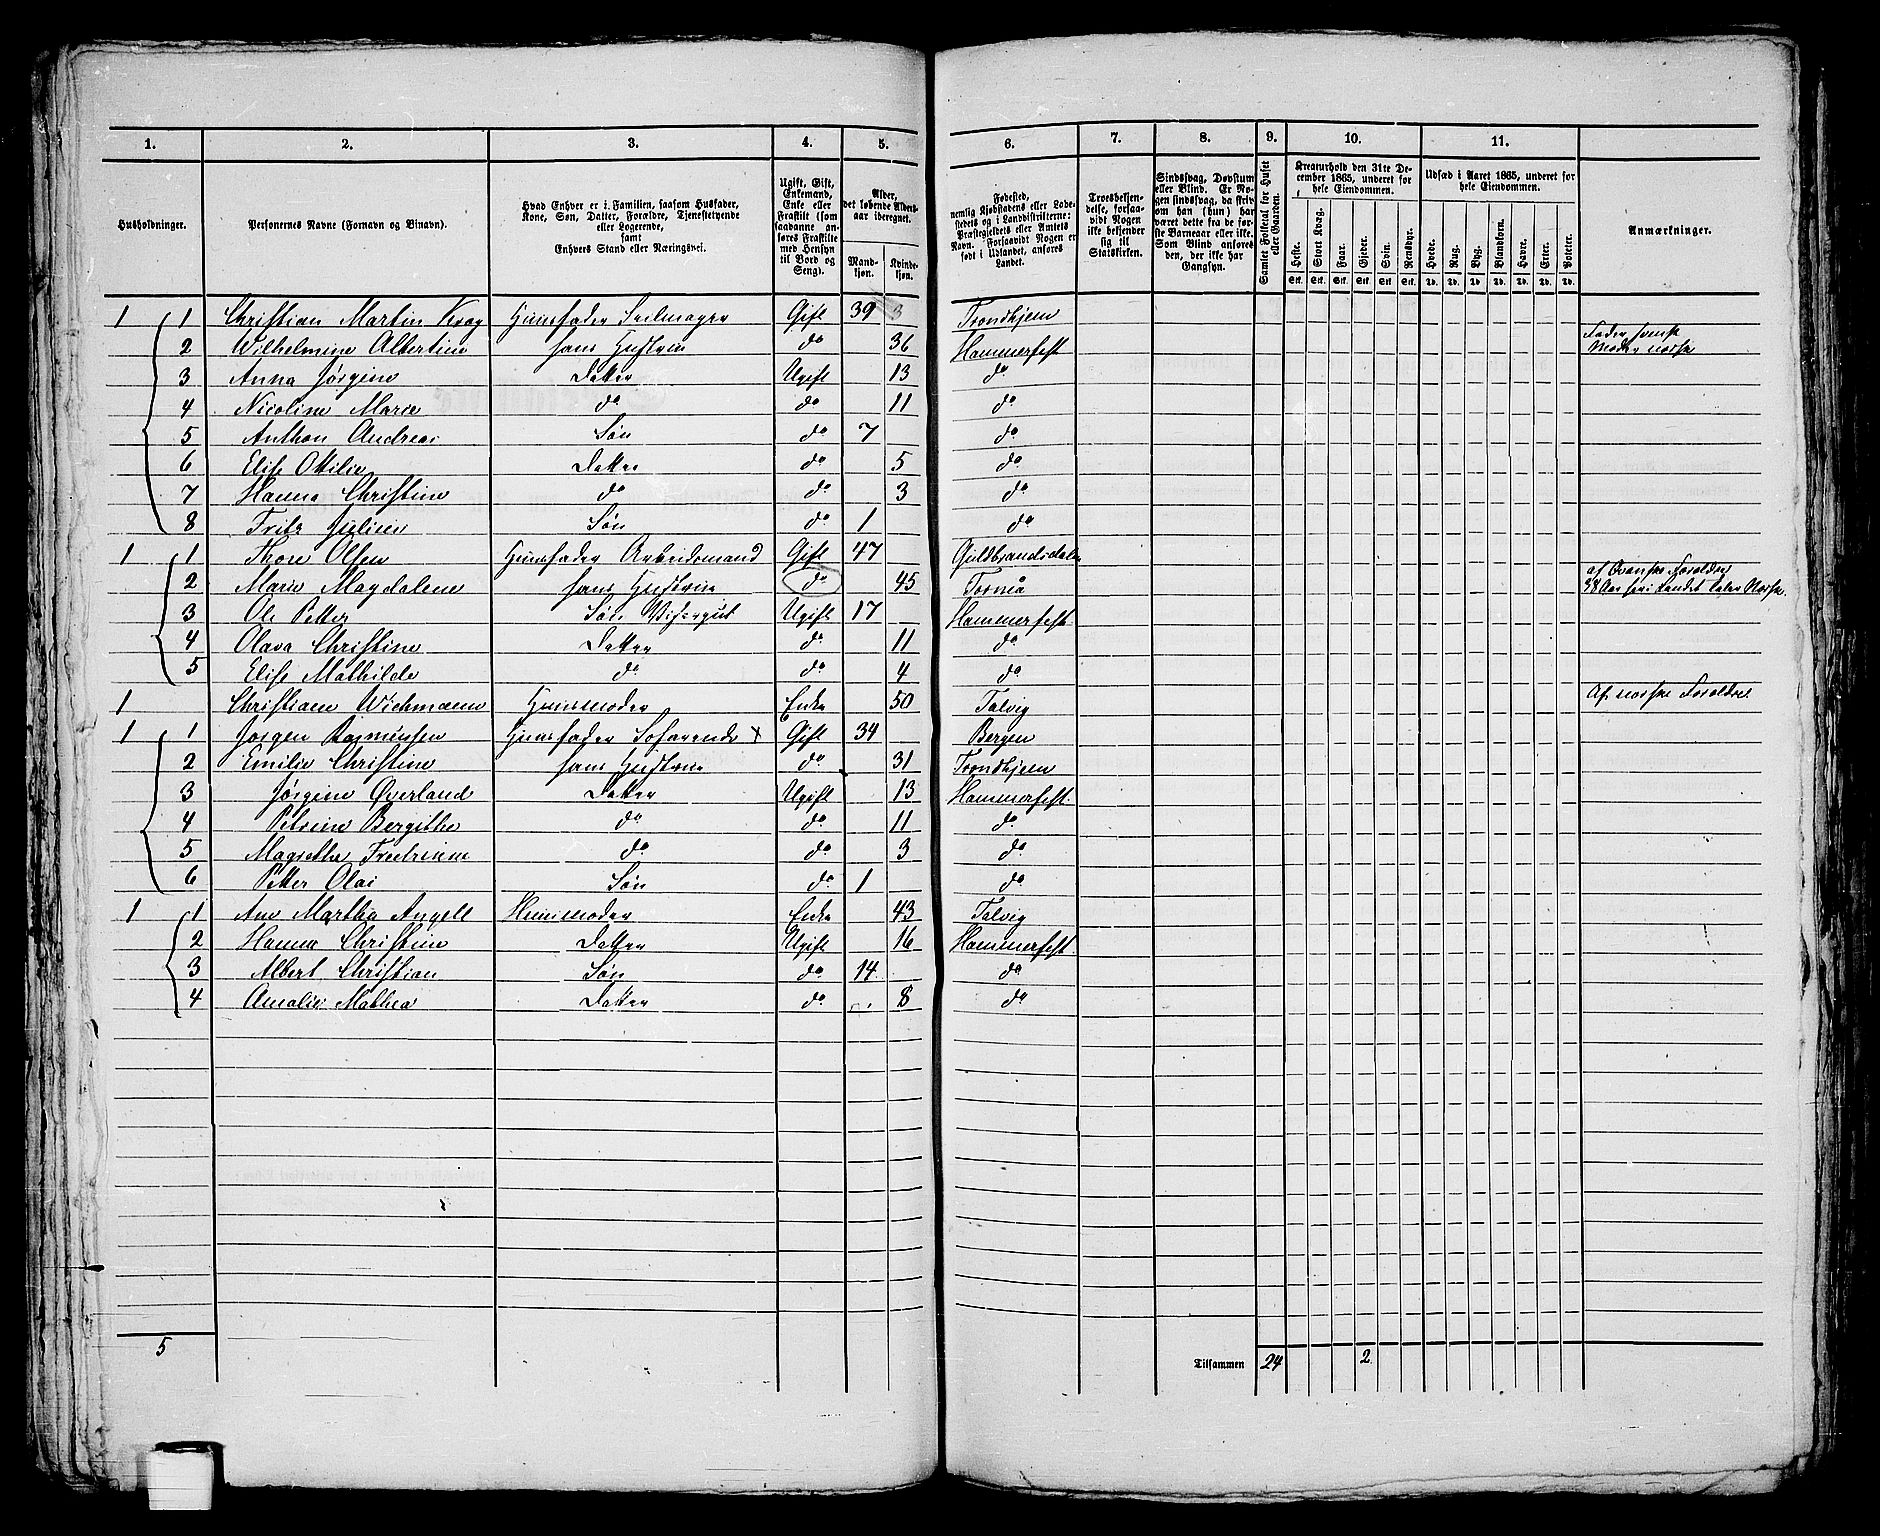 1. 2. 3. 4. 5. 6. 7. 8. 9. 10. 11.
Husholdninger.
Personernes Navne (Fornavn og Binavn).
Hvad Enhver er i Familien, saasom Husfader,
Kone, Søn, Datter, Forældre, Tjenestetyende
eller Logerende,
samt
Enhvers Stand eller Næringsvei.
Ugift, Gift,
Enkemand,
Enke eller
Fraskilt (som
saadanne an-
føres Fraskilte
med Hensyn
til Bord og
Seng).
Alder,
det løbende Alders-
aar iberegnet.
Mand-
kjøn.
Kvinde-
kjøn.
Fødested,
nemlig Kjøbstadens eller Lade-
stedets og i Landdistrikterne:
Præstegjeldets eller Amtets
Navn. Forsaavidt Nogen er
født i Udlandet, anføres
Landet.
Troesbekjen-
delse, forsaa-
vidt Nogen
ikke bekjender
sig til
Statskirken.
Sindssvag, Døvstum
eller Blind. Er No-
gen sindssvag, da skriv
om han (hun) har
været dette fra de før-
ste Barneaar eller ikke.
Som Blind anføres
den, der ikke har
Gangsyn.
Samlet Folketal for Huset
eller Gaarden.
Kreaturhold den 31te De-
cember 1865, underet for
hele Eiendommen.
Heste. Stort Kvæg. Faar. Gjeder. Svin. Rensdyr.
Stk. Stk. Stk. Stk. Stk. Stk.
Udsæd i Aaret 1865, underet for
hele Eiendommen.
Hvede. Rug. Byg. Blandkorn. Havre. Erter. Poteter.
Td. Td. Td. Td. Td. Td. Td.
Anmærkninger.
1 1 Christian Martin Krog Huusfader Seilmager Gift 39 Trondhjem
2 Wilhelmine Albertine hans Hustrue do 36 Hammerfest Fader svensk Moder norsk
3 Anna Jørgine Datter Ugift 13 do
4 Nicoline Marie do do 11 do
5 Anthon Andreas Søn do 7 do
6 Elise Ottilie Datter do 5 do
7 Hanna Christine do do 3 do
8 Fritz Julius Søn do 1 do
1 1 Thore Olsen Huusfader Arbeidsmand Gift 47 Guldbrandsdalen
2 Marie Magdalene hans Hustrue do 45 Torneå af Qvænske Forældre
3 Ole Petter Søn Visergut Ugift 17 Hammerfest
4 Olava Christine Datter do 11 do
5 Elise Mathilde do do 4 do
1 Christiane Wichmann Huusmoder Enke 50 Talvig Af norske Forældre
1 1 Jørgen Rasmussen Huusfader Søfarende x Gift 34 Bergen
2 Emilie Christine hans Hustrue do 31 Trondhjem
3 Jørgine Øverland Datter Ugift 13 Hammerfest.
4 Petrine Bergithe do do 11 do
5 Magrethe Fredrikke do do 3 do
6 Petter Olai Søn do 1 do
1 1 Ane Martha Angell Huusmoder Enke 43 Talvig
2 Hanna Christine Datter Ugift 16 Hammerfest.
3 Albert Christian Søn do 14 do
4 Amalie Mathea Datter do 8 do
5 Tilsammen 24 2